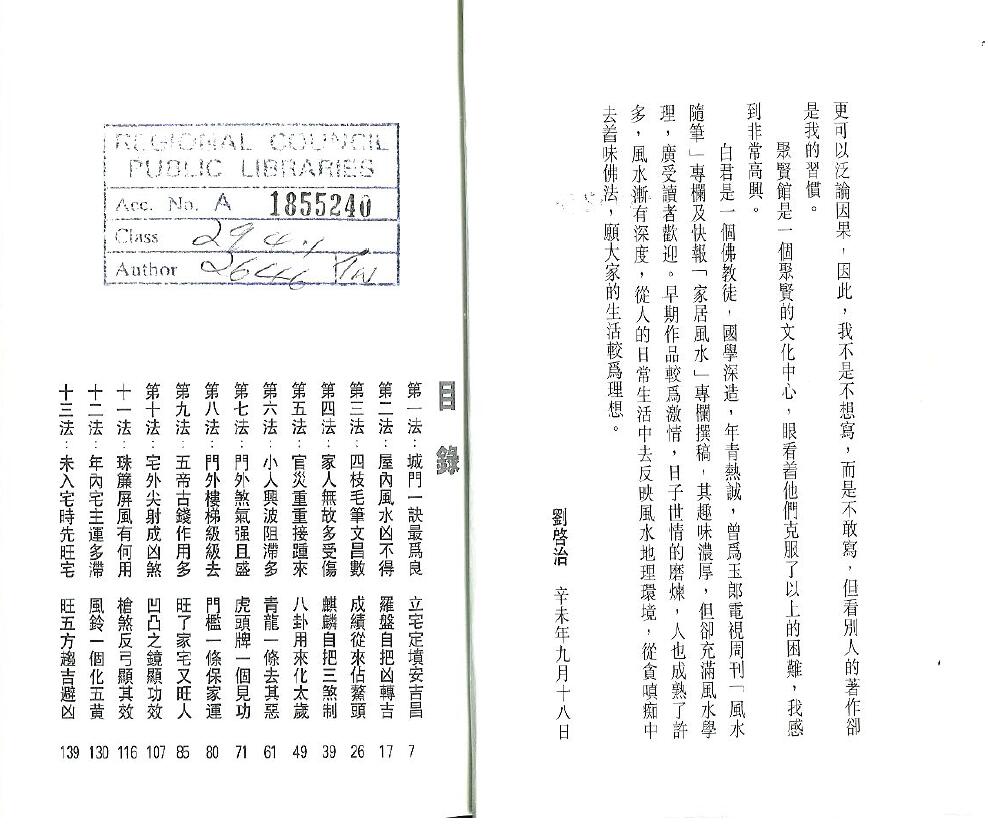 更可以泛論因果，因此，我不是不想寫，而是不敢寫，但看別人的著作卻
是我的習慣。
聚賢館是一個聚賢的文化中心，眼看着他們克服了以上的困難，我感
到非常高興。
白君是一個佛教徒，國學深造，年青熱誠，曾爲玉郎電視周刊「風水
隨筆」專欄及快報「家居風水」專欄撰稿，其趣味濃厚，但卻充滿風水學
理，廣受讀者歡迎。早期作品較爲激情，日子世情的磨煉，人也成熟了許
多，風水漸有深度，從人的日常生活中去反映風水地理環境，從貪嗔痴中
去着味佛法，願大家的生活較爲理想。
劉啓治　辛未年九月十八日
REGIONAL COUNCIL
PUBLIC LIBRARIES
Acc. No. A 1855240
Class 294.1
Author 2646
目錄
第一法：城門一訣最爲良　立宅定墳安吉昌 7
第二法：屋內風水凶不得　羅盤自把凶轉吉 17
第三法：四枝毛筆文昌數　成績從來佔鰲頭 26
第四法：家人無故多受傷　麒麟自把三煞制 39
第五法：官災重重接踵來　八卦用來化太歲 49
第六法：小人興波阻滯多　青龍一條去其惡 61
第七法：門外煞氣强且盛　虎頭牌一個見功 71
第八法：門外樓梯級級去　門檻一條保家運 80
第九法：五帝古錢作用多　旺了家宅又旺人 85
第十法：宅外尖射成凶煞　凹凸之鏡顯功效 107
十一法：珠簾屏風有何用　槍煞反弓顯其效 116
十二法：年內宅主運多滯　風鈴一個化五黃 130
十三法：未入宅時先旺宅　旺五方趨吉避凶 139